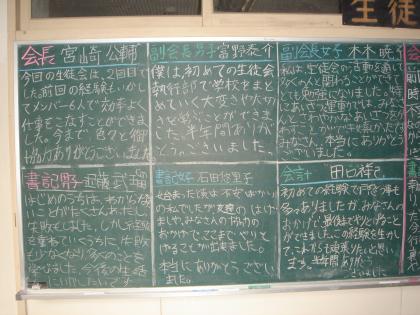 生徒
会長 宮崎 公輔
今回の生徒会は、2回目で
した。前回の経験もいかし
てメンバー6人で効率よく
仕事をこなすことができま
した。今まで色々と御
協力ありがとうございました
副会長男子 富野泰介
僕は、初めての生徒会
執行部で学校をまと
めていく大変さや大切
さを学ぶことができま
した。半年間ありが
とうございました。
副会長女子
私は、生徒会の活動を通して
多くの人と関わることができて
とても勉強になりました。特に
あいさつ運動では、みなさ
んとさわやかなあいさつを
本当にありがとう
ございました。
書記男子 近藤
はじめのうちは、わからな
いことがたくさんあった
失敗もしました。しかし経験
を重ねていくうちに失敗
もなくなり多くのことを
学びました。今後の生活
書記女子 石田悠里子
始まった頃は不安ばかり
の私でしたが友達のはげ
ましや、みなさんの協力の
おかげで、ここまでやりと
げることが出来ました。
本当にありがとうござい
ました。
会計 田口
初めての経験で戸惑う事も
多々ありましたが、みなさんの
おかげで、最後までやりとげること
ができました。この経験を生かし
て、これからも頑張りたいと思い
ます。半年間ありがとう
ございました